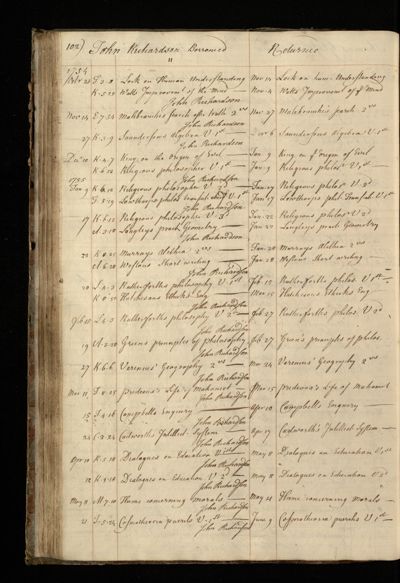 102) John Richardson Borrowed Returned
1754
28 E.2.8 Lock on Human Understanding Nov 14 Lock on hum. Understanding
K.5.20 Watts Improvemt of the Mind Nov 4 Watts Improvemt of ye Mind
John Richardson
Nov 14 E.7.34 Malebranches search aftr Truth 2vos Nov 27 Malebranche's search 2vos
John Richardson
27 K.5.9 Saundersons Algebra V. 1st 6 Saundersons Algebra V. 1st
John Richardson
10 K.4.7 King on the Origin of Evil Jan 9 King on ye origin of Evil
K.6.12 Religious philosopher V. 1st Jan 9 Religious philosr V. 1st
1755 John Richardson
Jan 9 K.6.12 Religious philosopher V. 2d Religious philosr V. 2d
F.5.29 Lowthorps philos transact abrd V. 1st Jan 17 Lowthorps phil Transact V. 1st
John Richardson
17 K.6.12 Religious philosopher V. 3d Jan 22 Religious philosr V. 3d
A.3.18 Langleys pract Geometry Jan 22 Langleys pract Geometry
John Richardson
22 K.0.21 Murrays Alethia 2vos Jan 28 Murrays Alethia 2vos
A.6.28 Westons Short writing Jan 28 Westons Short writing
John Richardson
L.2.3 Rutherforths philosophy V. 1st Feb 12 Rutherforths philos. V. 1st
K.0.15 Hutchesons Ethicks Eng. Hutchesons Ethicks Eng
John Richardson
Feb L.2.3 Rutherforths philosophy V. 2d Feb 27 Rutherforths philos. V. 2d
John Richardson
19 A.2.28 Greens principles of philosophy Feb 27 Green's principles of philos.
John Richardson
27 K.6.6 Varenius' Geography 2vos Mar 24 Varenius' Geography 2vos
John Richardson
Mar 11 Prideaux's Life of Mahomet 15 Prideaux's Life of Mahomet
John Richardson
15 I.4.16 Campbells Enquiry Apr 10 Campbells Enquiry
John Richardson
24 C.2.24 Cudworth's Intellect. System Apr 17 Cudworth's Intellect. System
John Richardson
Apr 10 K.5.18 Dialogues on Education V. 1st May 8 Dialogues on Education V. 1st
John Richardson
K.5.18 Dialogues on Education V. 2d May 8 Dialogues on Education V. 2d
John Richardson
May 8 M.7.10 Hume concerning Morals May 21 Hume concerning Morals
John Richardson
21 I.5.24 Cosmotheoria puerilis V. 1st June 9 Cosmotheoria puerilis V. 1st
John Richardson